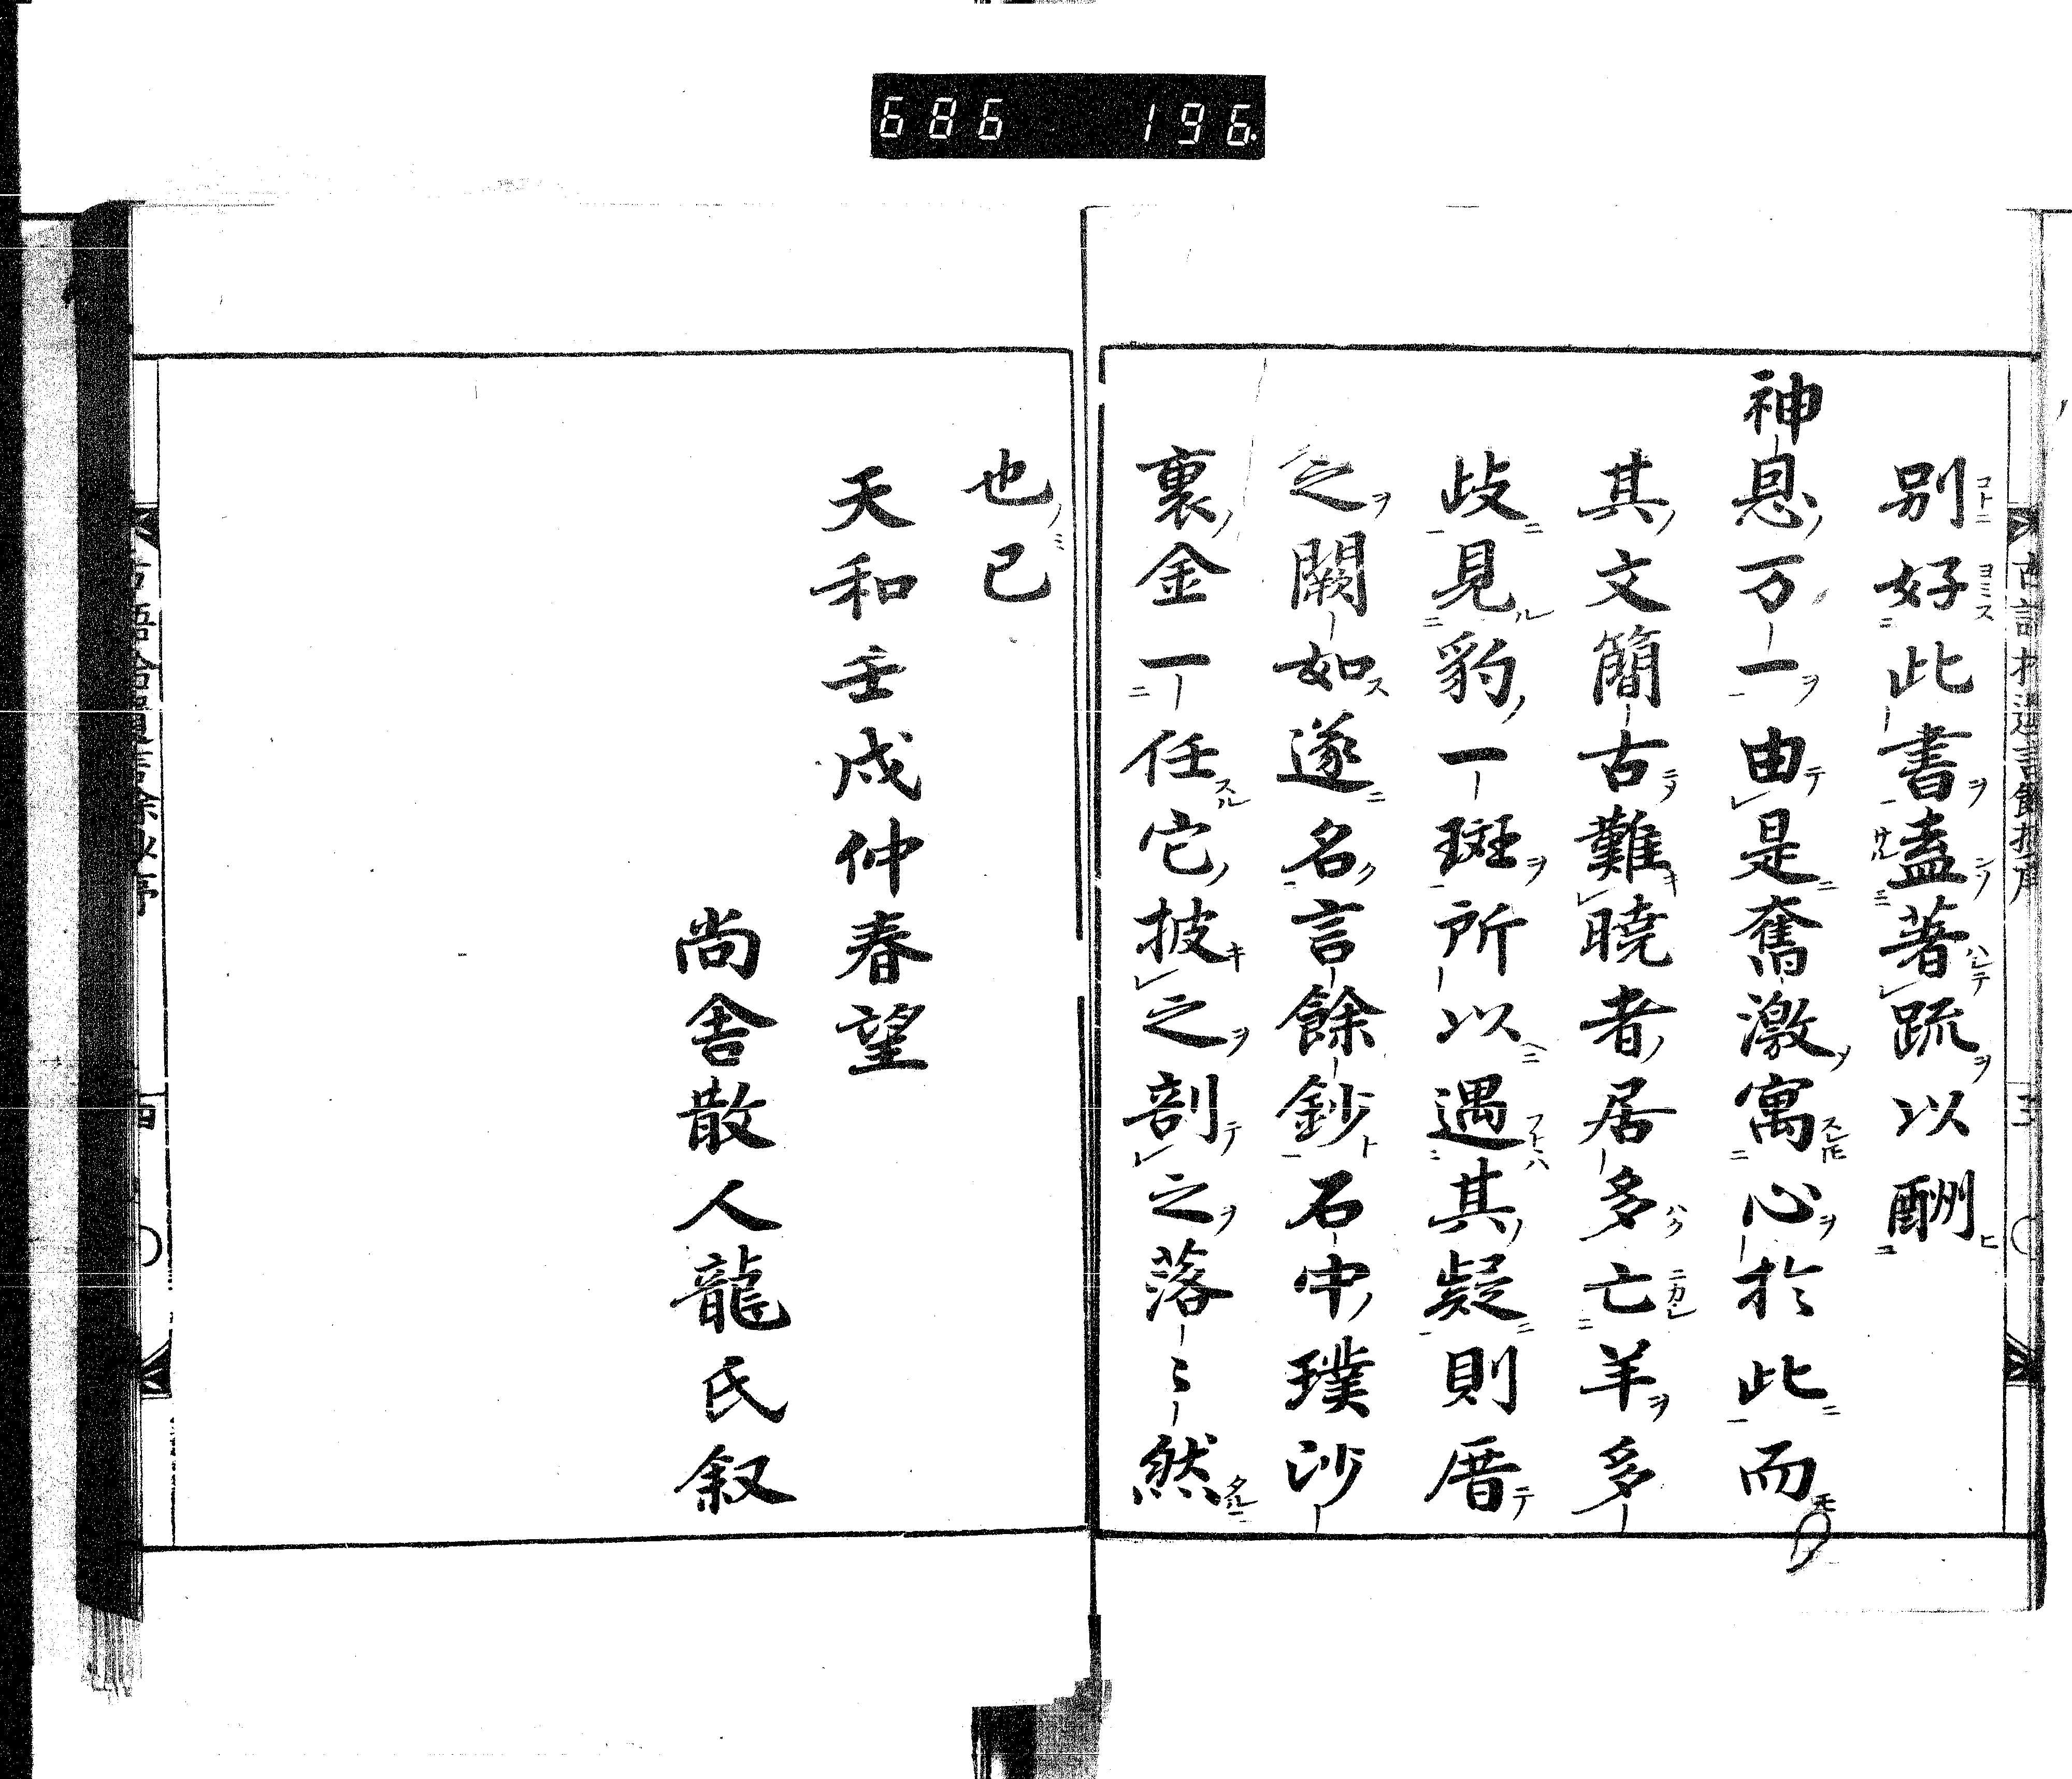 686 196
別好此書盍著疏以酬
神恩万一由是奮激寓心於此而
其文簡古難曉者居多亡羊多
歧見豹一斑所以遇其疑則厝
之闕如遂名言餘鈔石中璞沙
裏金一任它披之剖之落〻然
也已
天和壬戌仲春望
尚舍散人龍氏叙